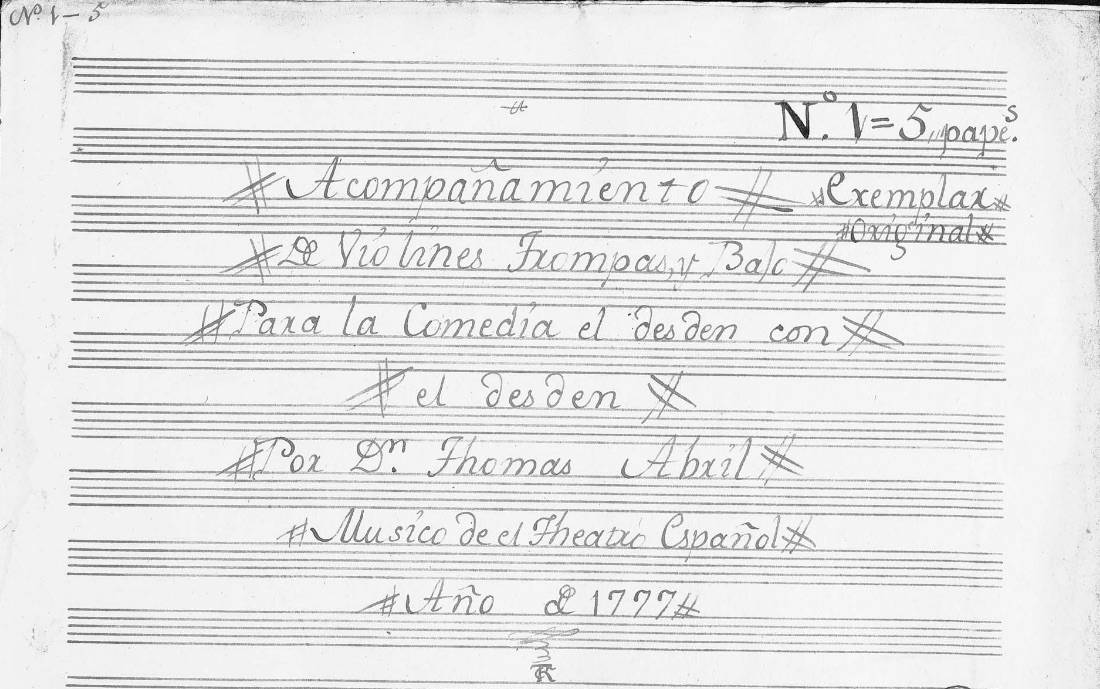 Nº 1 - 5
Nº 1 = 5 pape.s
Acompañamiento
Exemplar
Original
De Violines Trompas, y Bajo
Para la Comedia el desden con
el desden
Por Dn. Thomas Abril
Musico de el Theatro Español
Año de 1777